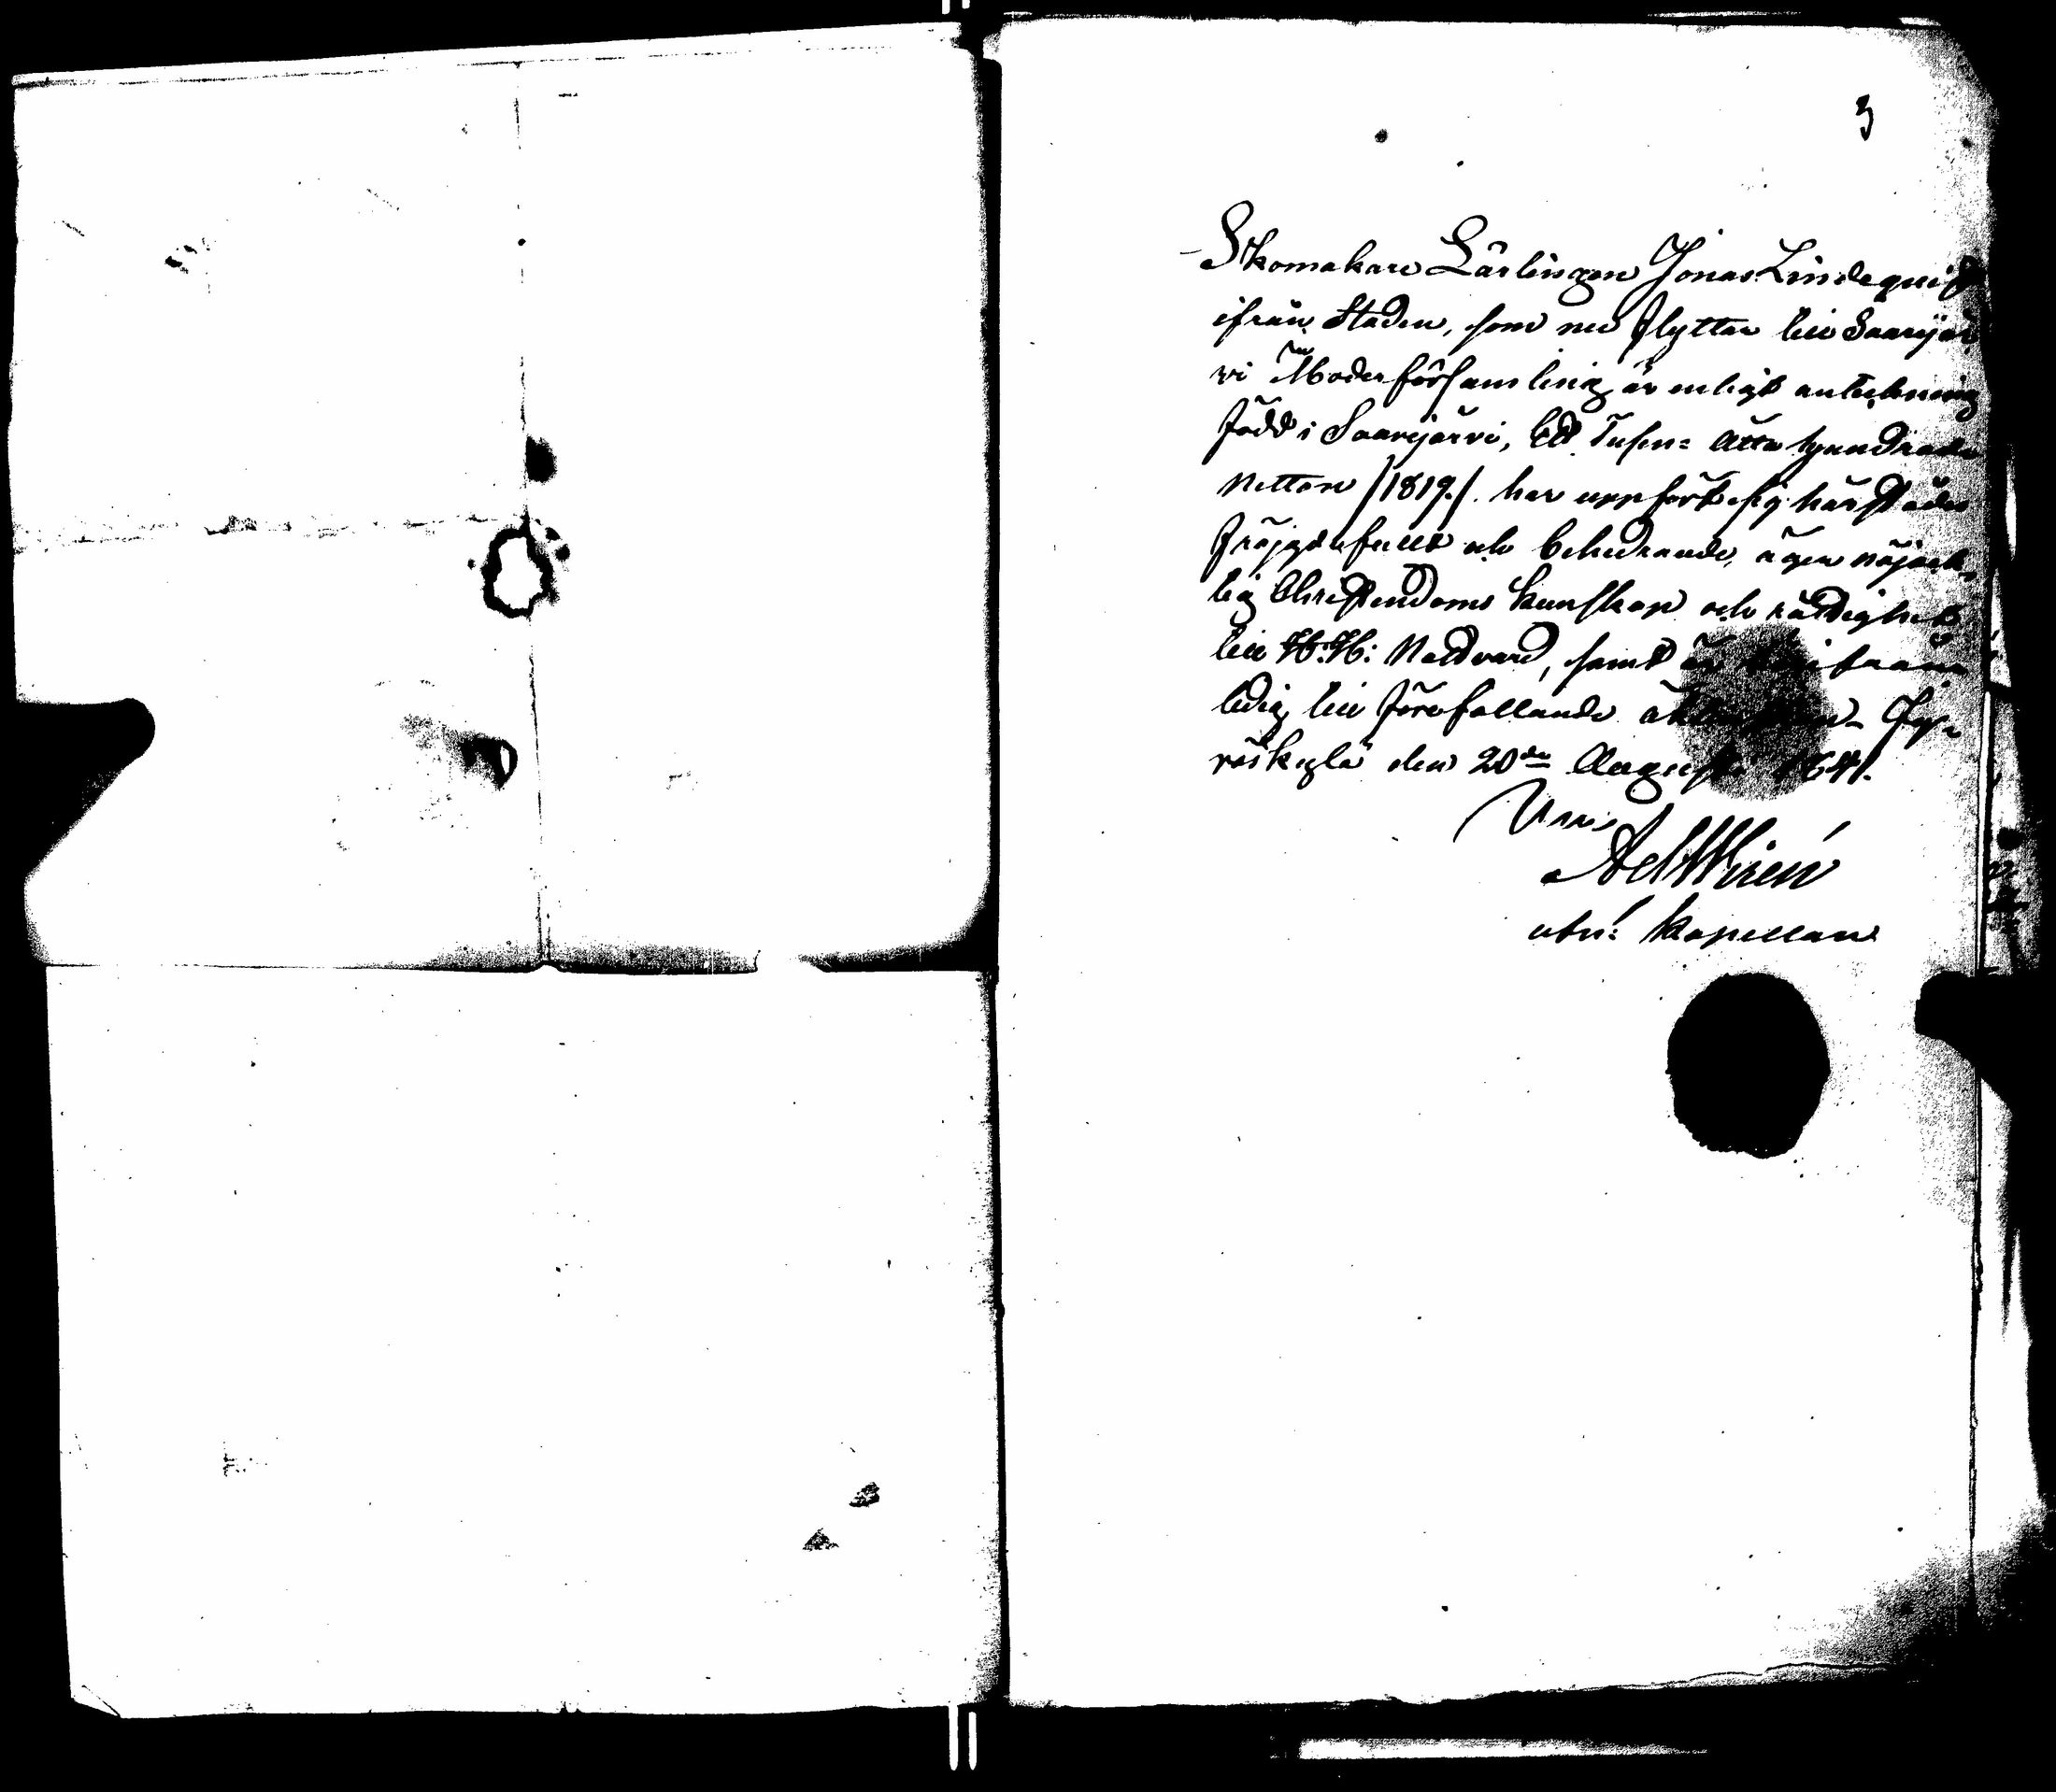 3
Skomakare Lärlingen Jonas Lindequist
ifrån Staden, som nu flyttar till Saarijär
vi Moderförsamling är enligt anteckning
född i Saarijärvi, Ett Tusen= Åtta hundrade
Nitton /1819./. har uppfört sig härstädes
fräjgdefullt och behedrande, äger nöjack-
lig Christendoms kunskap och
till H:H: Nattvard, samt är
ledig till förefallande Jy-
väskylä den 20de Augusti 1841.
kapellan